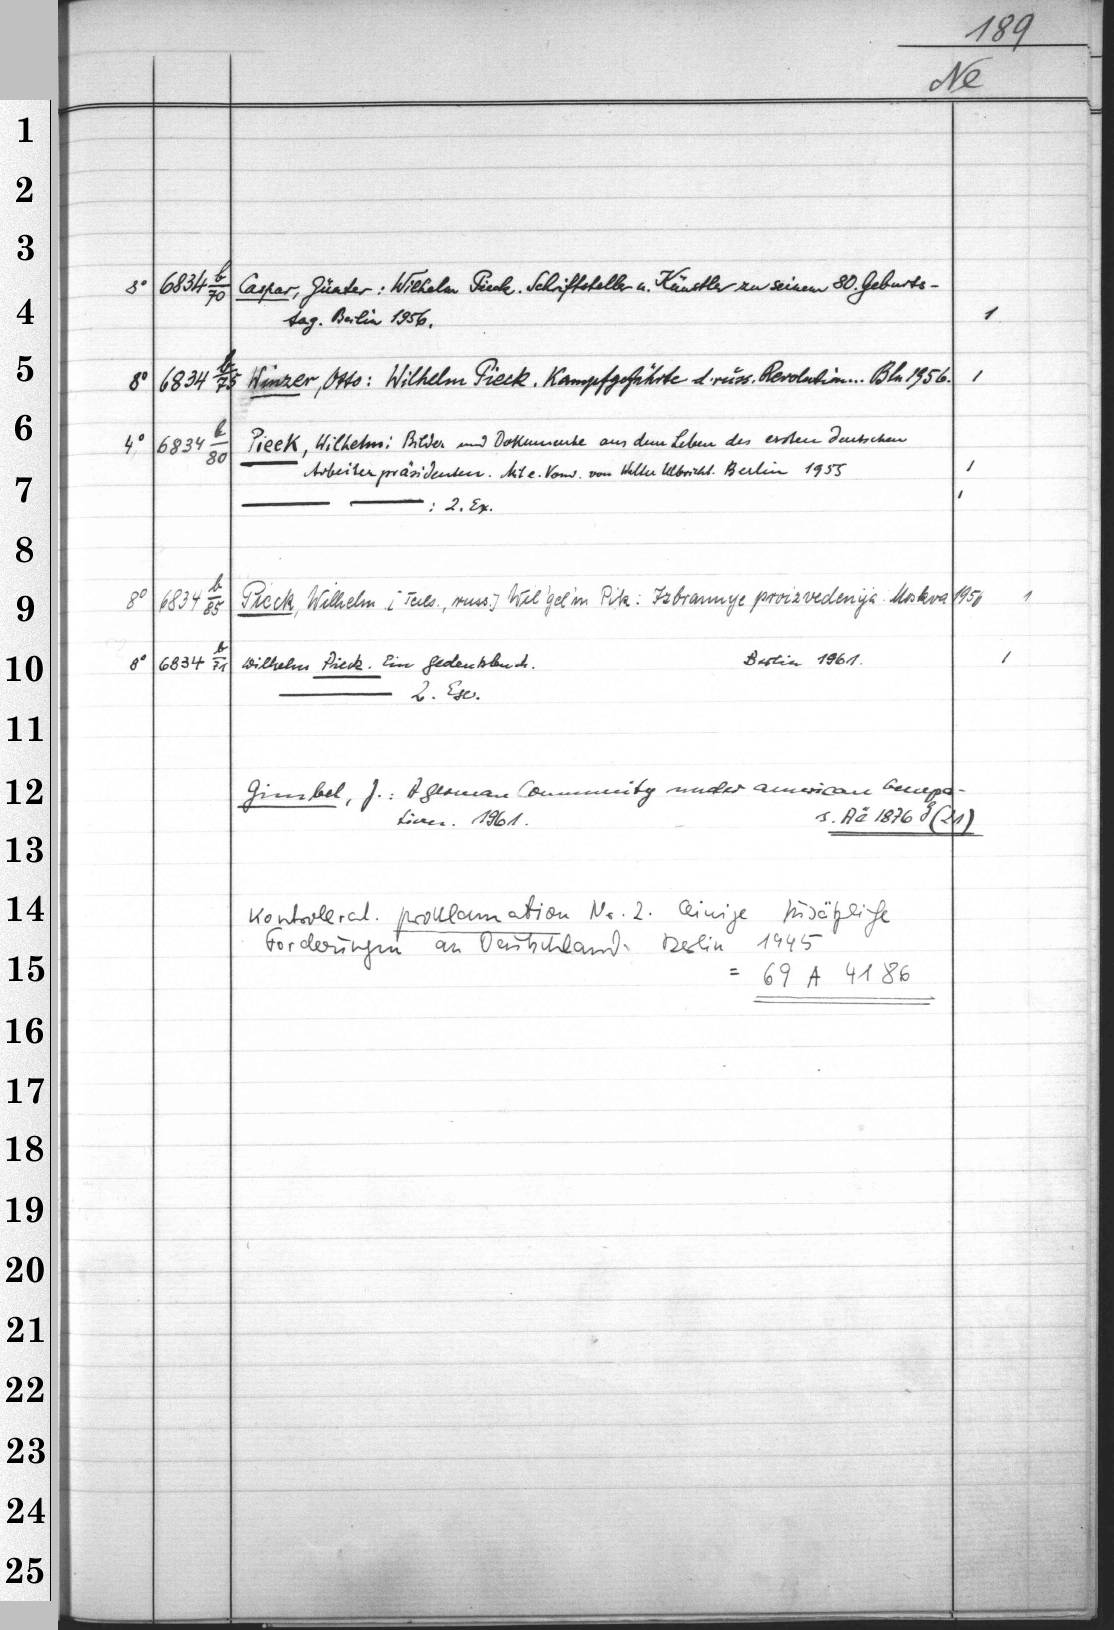 189
Ne
1
2
3
8° 6834 b/70 Caspar, Günter: Wilhelm Pieck. Schriftsteller u. Künstler zu seinem 80. Geburts-
4
tag. Berlin 1956. 1
5
8° 6834 b/75 Winzer, Otto: Wilhelm Pieck. Kampfgefährte d. russ. Revolution... Bln 1956. 1
6
4° 6834 b/80 Pieck, Wilhelm: Bilder und Dokumente aus dem Leben des ersten deutschen
Arbeiterpräsidenten. Mit e. Vorw. von Walter Ulbricht. Berlin 1955 1
7
— — : 2. Ex. 1
8
8° 6834 b/85 Pieck, Wilhelm [Teils., russ.] Vil'gel'm Pik: Izbrannye proizvedenija. Moskva 1956 1
9
8° 6834 b/71 Wilhelm Pieck. Ein Gedenkbuch. Berlin 1961. 1
10
— 2. Ex.
11
12
Gimbel, J.: A german Community under american occupa-
tion. 1961. s. Aä 1876 g (21)
13
14
Kontrollrat. Proklamation Nr. 2. Einige zusätzliche
Forderungen an Deutschland. Berlin 1945
15
= 69 A 4186
16
17
18
19
20
21
22
23
24
25